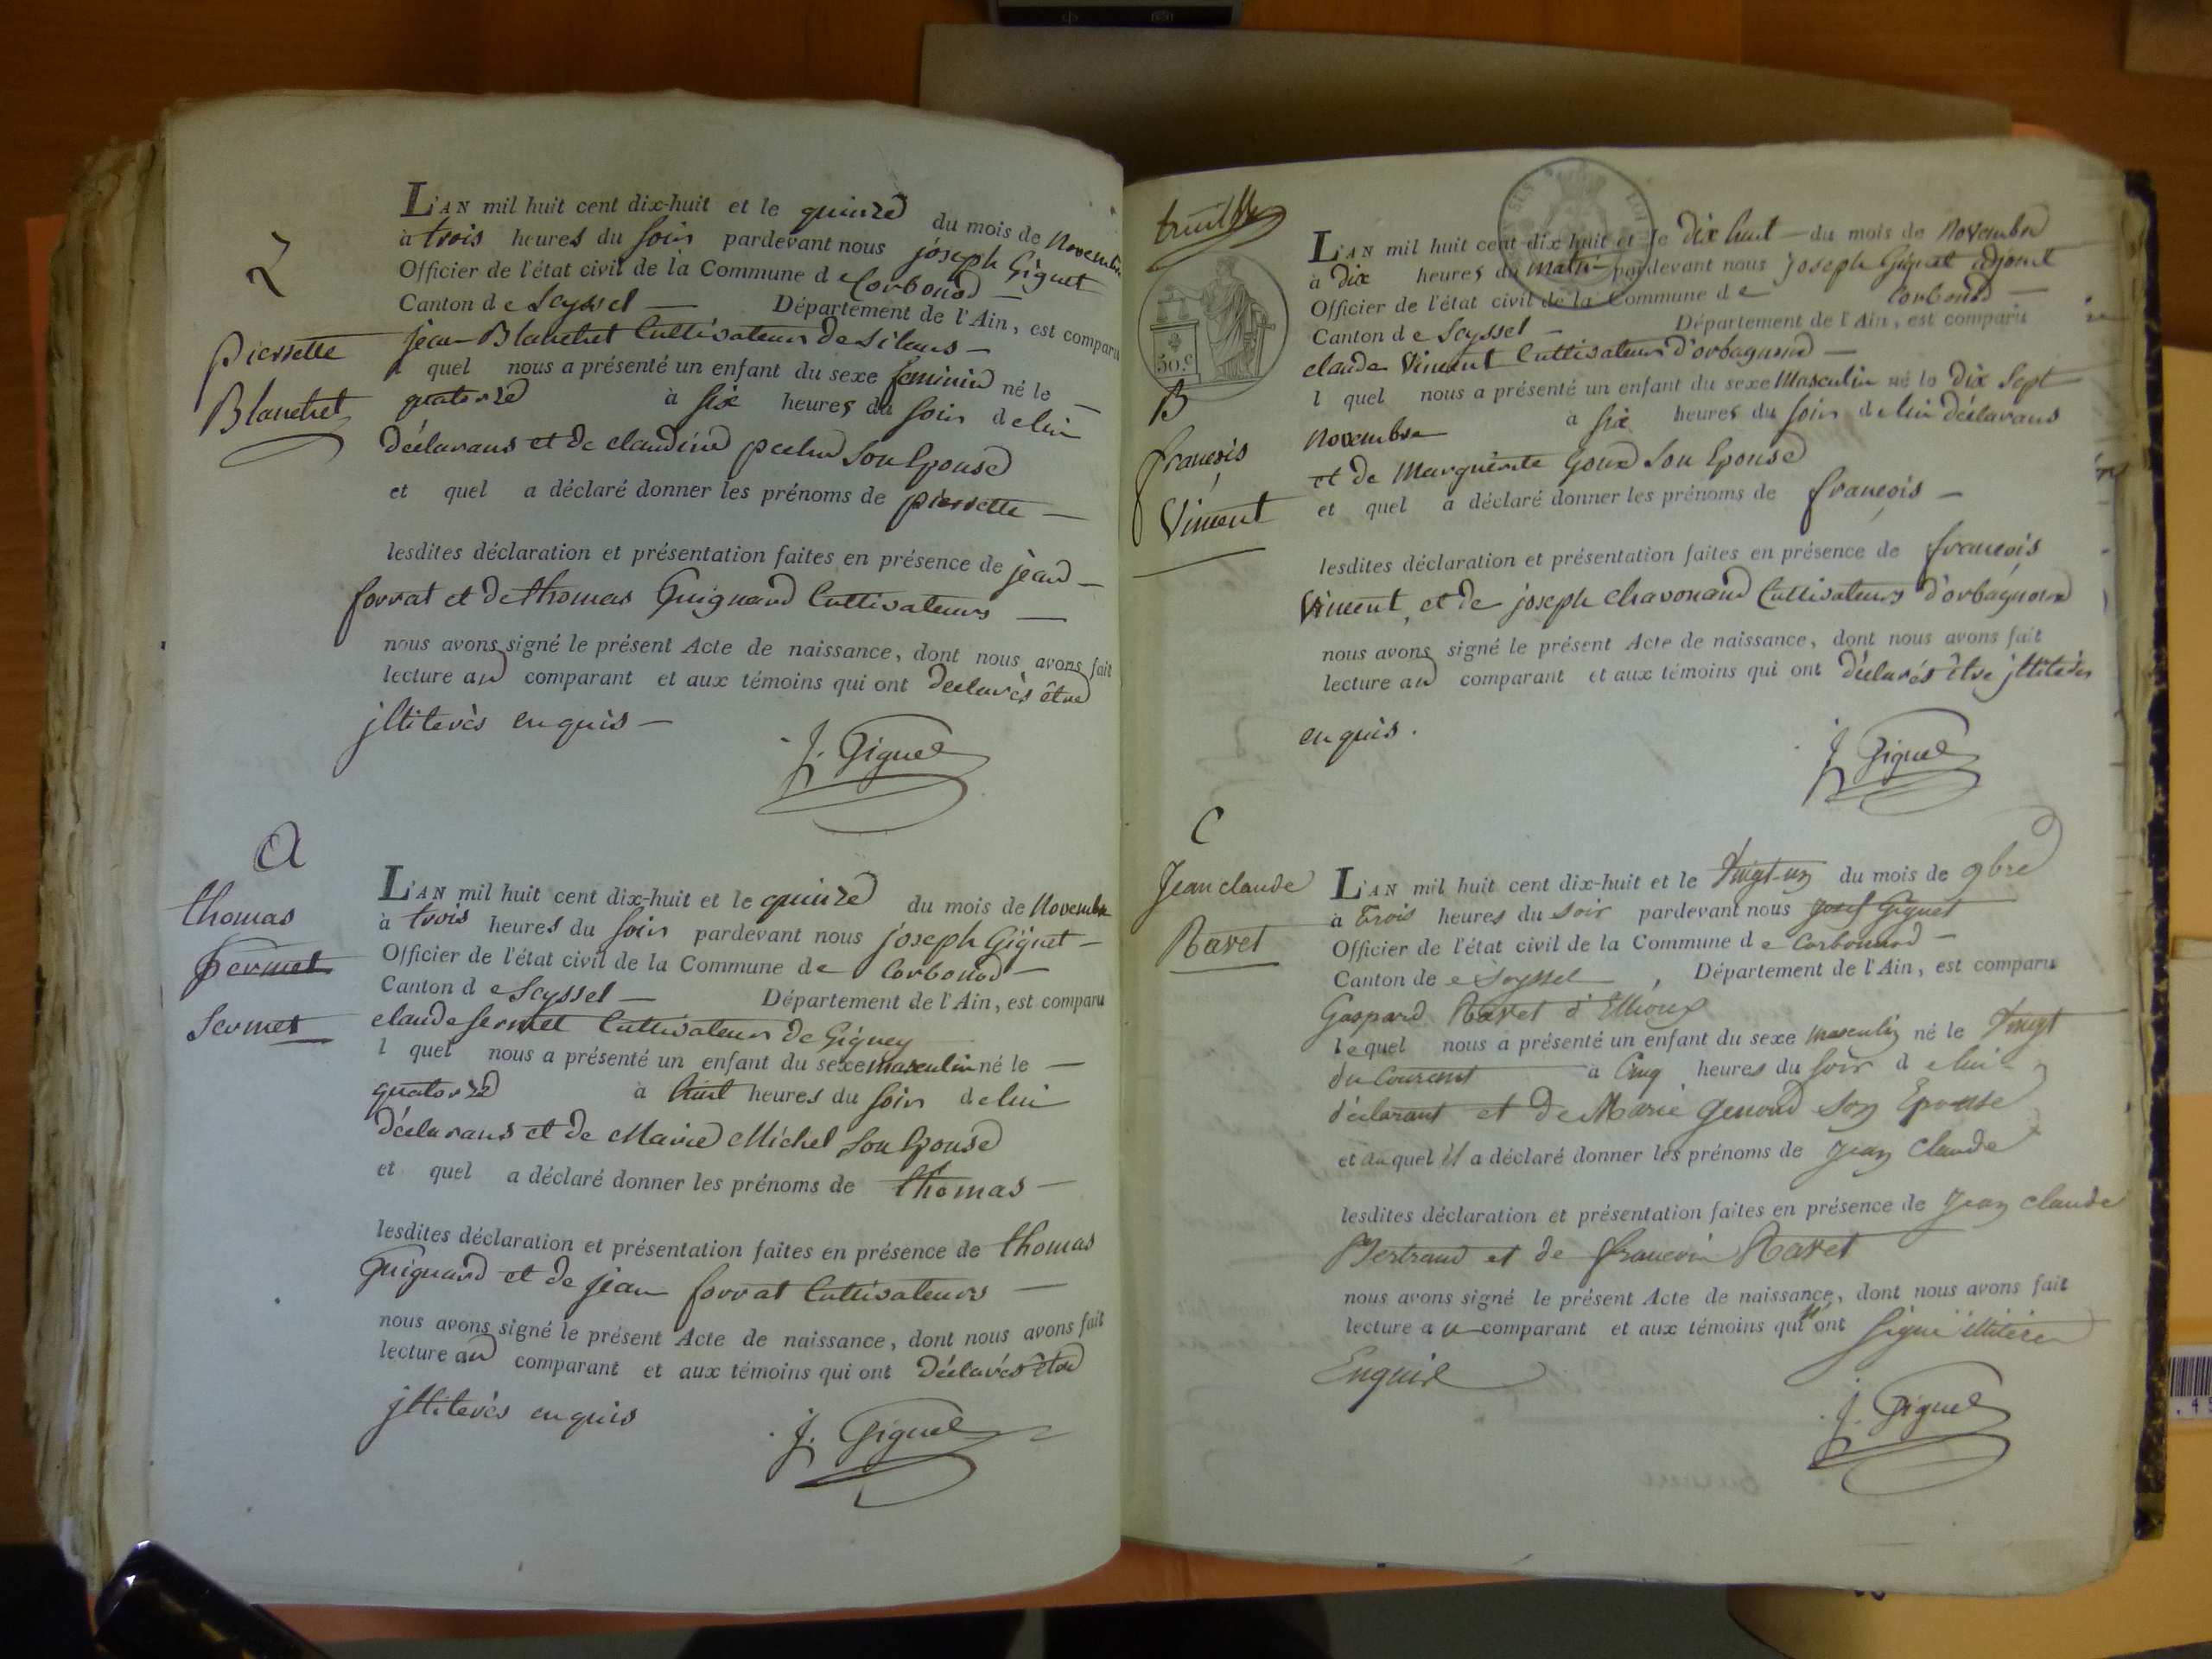 Z
Pierrette
Blanchet
L'AN mil huit cent dix-huit et le quinze du mois de Novembre
à trois heures du soir pardevant nous joseph Giguet
Officier de l'état civil de la Commune de Corbonod —
Canton de Seyssel — Département de l'Ain, est comparu
jean Blanchet Cultivateur de Silans —
l quel nous a présenté un enfant du sexe feminin né le —
quatorze à six heures du soir de lui
déclarans et de claudine son Epouse
et quel a déclaré donner les prénoms de pierrette —
lesdites déclaration et présentation faites en présence de jean —
forrat et de thomas Guignard Cultivateurs —
nous avons signé le présent Acte de naissance, dont nous avons fait
lecture au comparant et aux témoins qui ont declarès être
jlliterès enquis —
J. Giguet
A
thomas
fermet
Sermet
L'AN mil huit cent dix-huit et le quinze du mois de Novembre
à trois heures du soir pardevant nous joseph Giguet —
Officier de l'état civil de la Commune de Corbonod —
Canton de Seyssel — Département de l'Ain, est comparu
claude sermet Cultivateur de Gigney
l quel nous a présenté un enfant du sexe masculin né le —
quatorze à huit heures du soir de lui
déclarans et de Marie Michel son Epouse
et quel a déclaré donner les prénoms de thomas —
lesdites déclaration et présentation faites en présence de thomas
Guignard et de jean forrat Cultivateurs —
nous avons signé le présent Acte de naissance, dont nous avons fait
lecture au comparant et aux témoins qui ont déclarés être
jllitérès enquis
J. Giguet
50 c.
B
françois
Vincent
L'AN mil huit cent dix-huit et le dix huit — du mois de Novembre
à dix heures du matin pardevant nous joseph Giguet adjoint
Officier de l'état civil de la Commune de Corbonod —
Canton de Seyssel — Département de l'Ain, est comparu
claude Vincent Cultivateur d'orbagnoud —
l quel nous a présenté un enfant du sexe Masculin né le dix sept
Novembre à six heures du soir de lui déclarans
et de Marguerite Goux son Epouse
et quel a déclaré donner les prénoms de françois —
lesdites déclaration et présentation faites en présence de françois
Vincent, et de joseph chavonand Cultivateurs d'orbagnoud
nous avons signé le présent Acte de naissance, dont nous avons fait
lecture au comparant et aux témoins qui ont déclarés être jllitérés
enquis.
J. Giguet
C
Jean claude
Ravet
L'AN mil huit cent dix-huit et le vingt-un du mois de 9bre
à trois heures du soir pardevant nous josef Giguet
Officier de l'état civil de la Commune de Corbonnod —
Canton de e Seyssel, Département de l'Ain, est comparu
Gaspard Ravet d'Etthoux
lequel nous a présenté un enfant du sexe masculin né le vingt
du Courant à Cinq heures du soir de lui
déclarant et de Marie Genoud son Epouse
et du quel il a déclaré donner les prénoms de Jean Claude
lesdites déclaration et présentation faites en présence de Jean claude
Bertrand et de Ravet
nous avons signé le présent Acte de naissance, dont nous avons fait
lecture au comparant et aux témoins qui n' ont signé illitérés
Enquis
J. Giguet